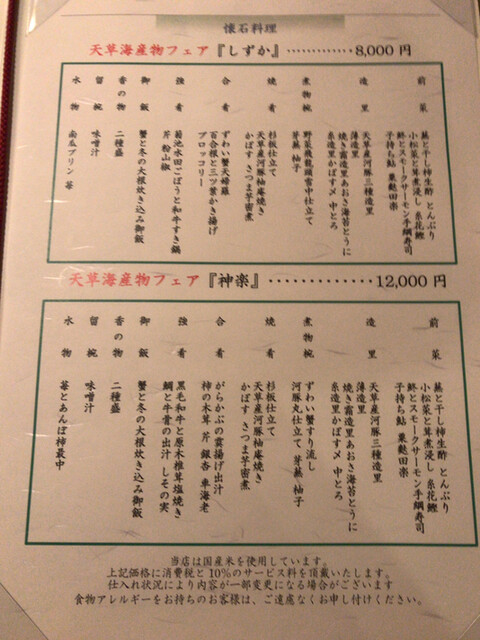 懐石料理
天草海産物フェア『しずか』・・・・・・・・・・・・8,000 円
前菜
蕪と干し柿生酢 とんぶり
小松菜と茸煮浸し 糸花鰹
鮗とスモークサーモン手綱寿司
子持ち鮎 巣麩田楽
造里
天草産河豚三種造里
薄造里
焼き霜造里あおさ海苔とうに
糸造里かぼすメ 中とろ
煮物椀
野菜飛龍頭雪中仕立て
芽蕪 柚子
焼肴
杉板仕立て
天草産河豚柚庵焼き
かぼす さつま芋密煮
合肴
ずわい蟹天婦羅
百合根と三ツ葉かき揚げ
ブロッコリー
強肴
菊池水田ごぼうと和牛すき鍋
芹 粉山椒
御飯
蟹と冬の大根炊き込み御飯
香の物
二種盛
留椀
味噌汁
水物
南瓜プリン 苺
天草海産物フェア『神楽』・・・・・・・・・・・・・・12,000 円
前菜
蕪と干し柿生酢 とんぶり
小松菜と茸煮浸し 糸花鰹
鮗とスモークサーモン手綱寿司
子持ち鮎 巣麩田楽
造里
天草産河豚三種造里
薄造里
焼き霜造里あおさ海苔とうに
糸造里かぼすメ 中とろ
煮物椀
ずわい蟹すり流し
河豚丸仕立て 芽蕪 柚子
焼肴
杉板仕立て
天草産河豚柚庵焼き
かぼす さつま芋密煮
合肴
がらかぶの雲揚げ出汁
柿の木茸 芹 銀杏 車海老
強肴
黒毛和牛と原木椎茸塩焼き
鯛と牛骨の出汁 しその実
御飯
蟹と冬の大根炊き込み御飯
香の物
二種盛
留椀
味噌汁
水物
苺とあんぽ柿最中
当店は国産米を使用しています。
上記価格に消費税と 10%のサービス料を頂戴いたします。
仕入れ状況により内容が一部変更になる場合がございます
食物アレルギーをお持ちのお客様は、ご遠慮なくお申し付けください。